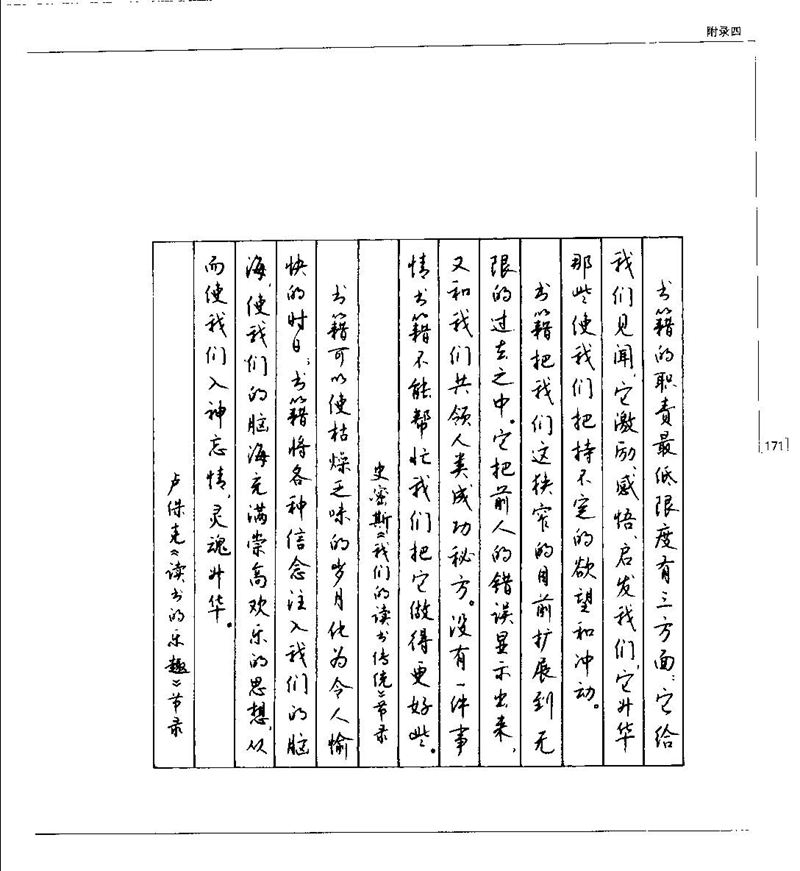 附录四
书籍的职责最低限度有三方面：它给
我们见闻，它激励、感悟、启发我们，它升华
那些使我们把持不定的欲望和冲动。
书籍把我们这狭窄的目前扩展到无
限的过去之中。它把前人的错误显示出来，
又和我们共领人类成功秘方。没有一件事
情书籍不能帮忙我们把它做得更好些。
史密斯《我们的读书传统》节录
书籍可以使枯燥乏味的岁月化为令人愉
快的时日；书籍将各种信念注入我们的脑
海，使我们的脑海充满崇高欢乐的思想，从
而使我们入神忘情，灵魂升华。
卢伯克《读书的乐趣》节录
171